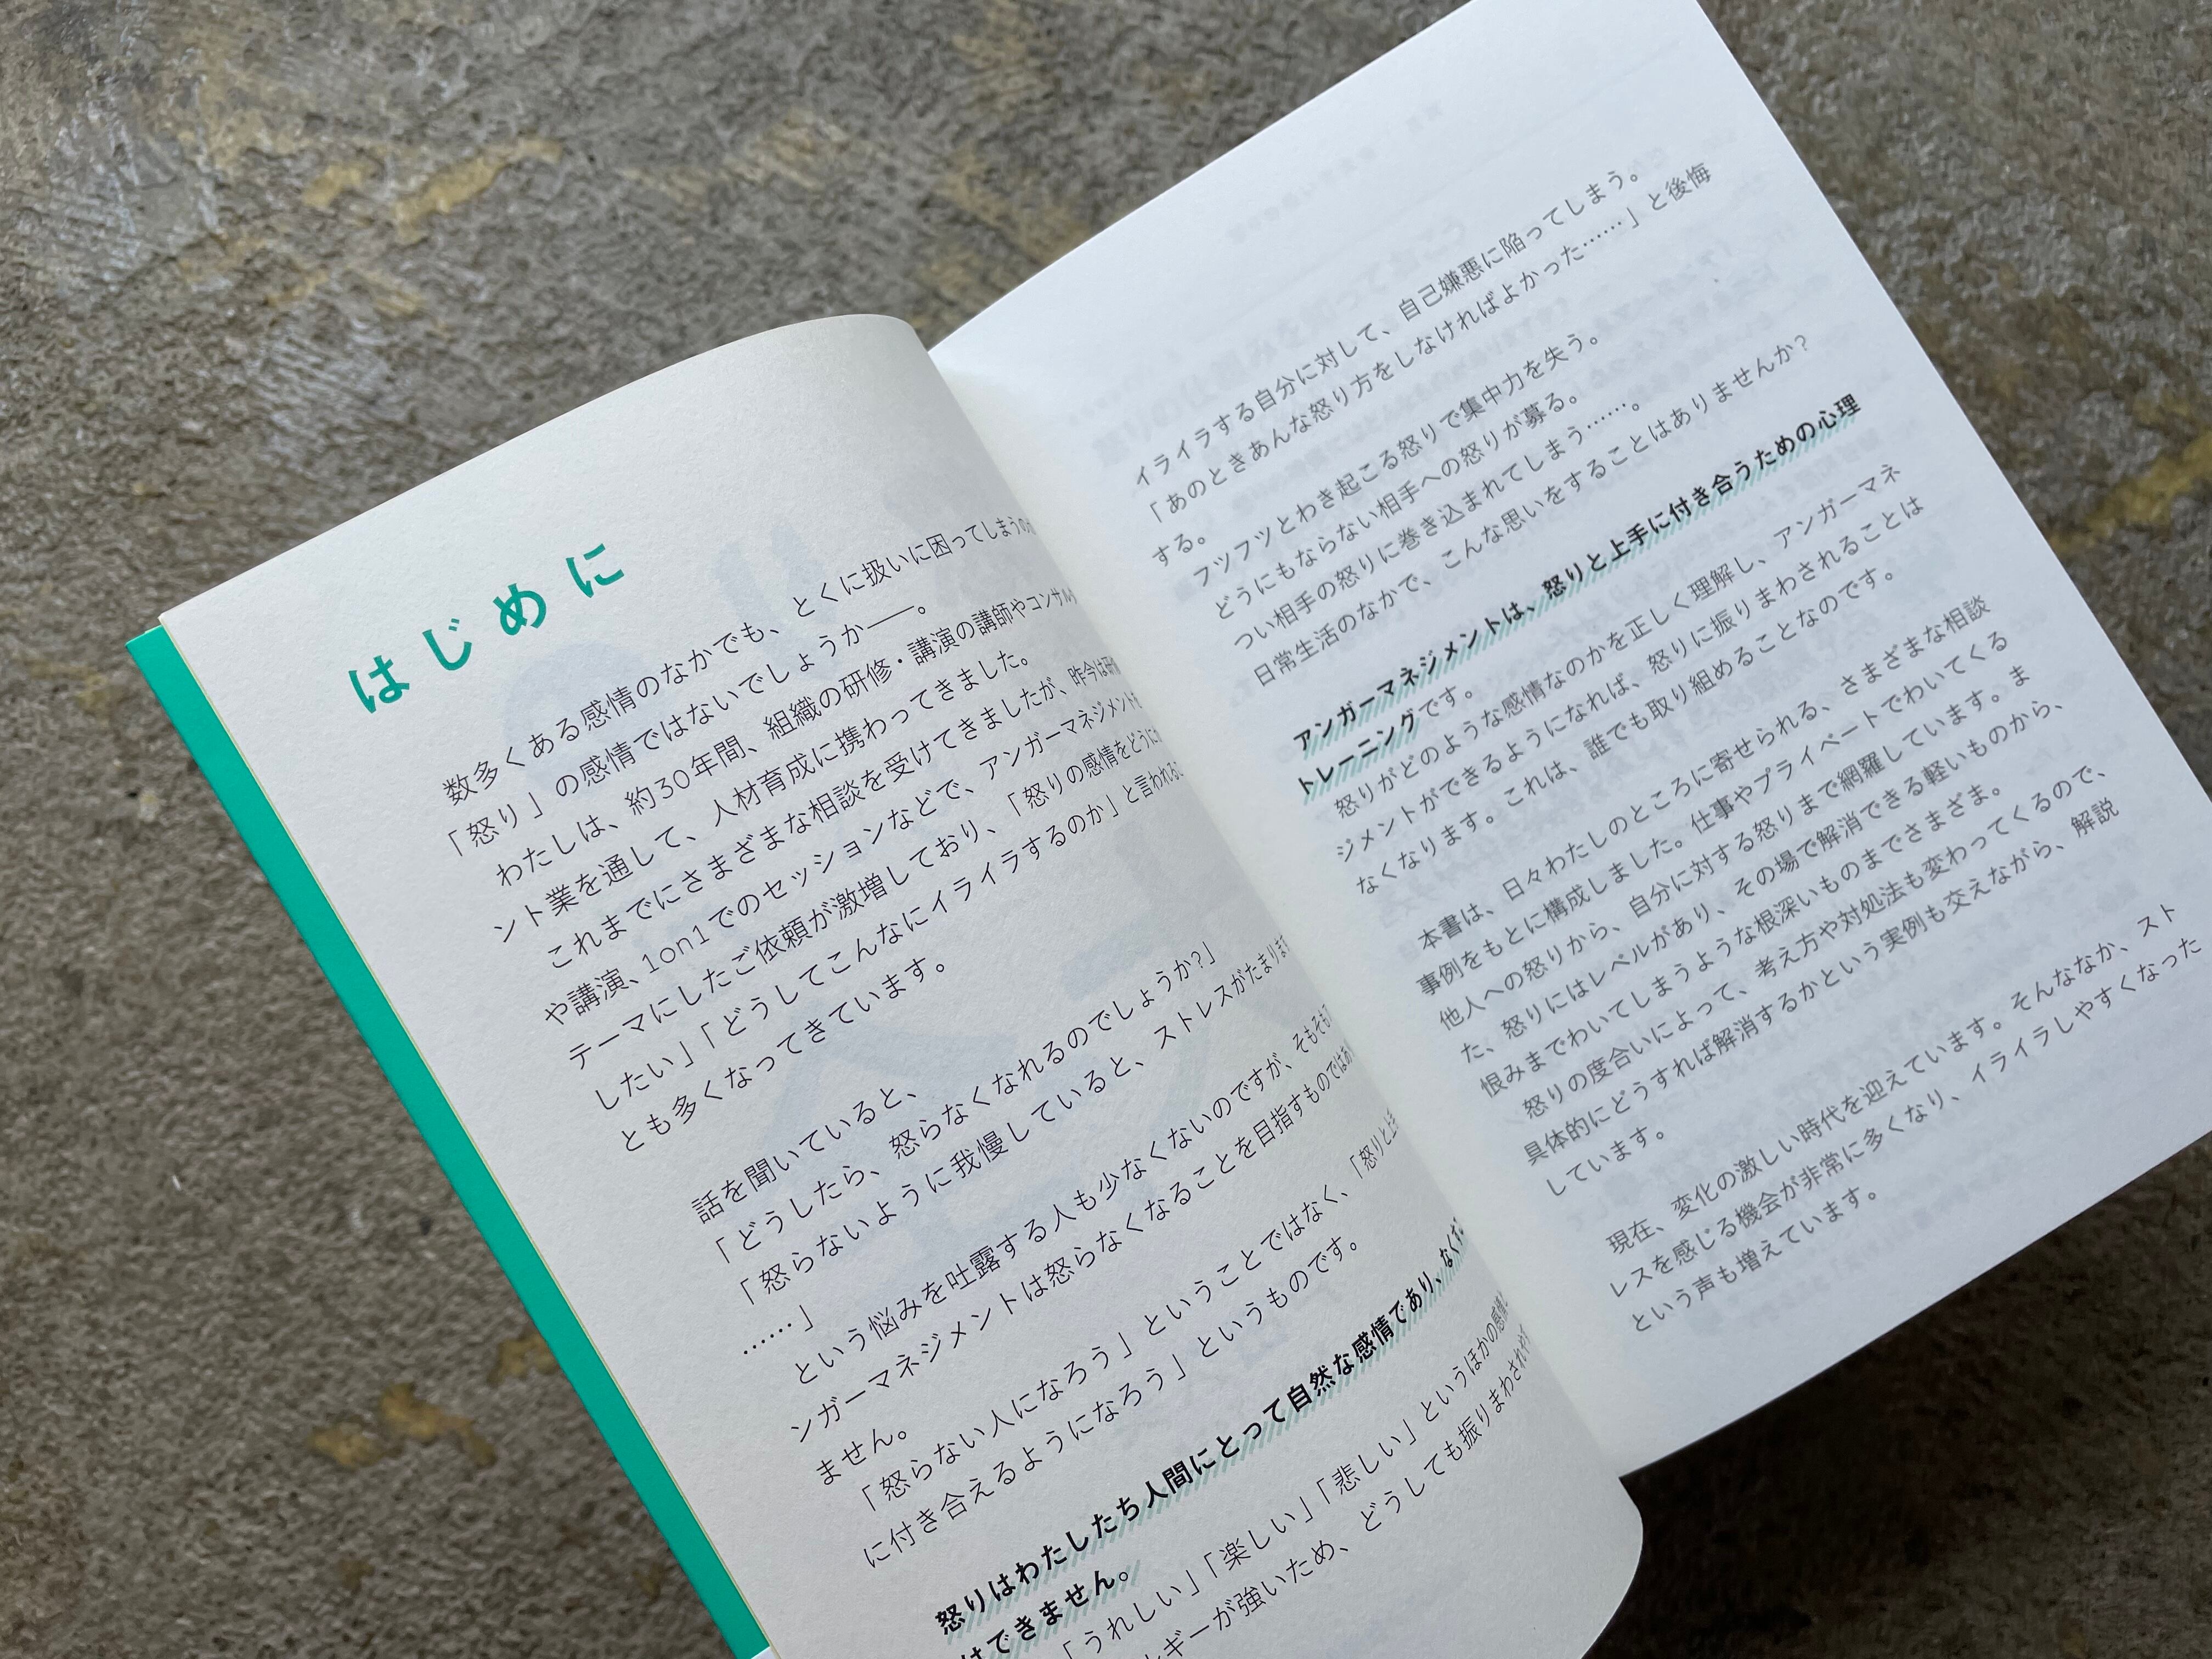 はじめに
数多くある感情のなかでも、とくに扱いに困ってしまうの
「怒り」の感情ではないでしょうか――。
わたしは、約30年間、組織の研修・講演の講師やコンサル
ント業を通して、人材育成に携わってきました。
これまでにさまざまな相談を受けてきましたが、昨今は研
や講演、1on1でのセッションなどで、アンガーマネジメントを
テーマにしたご依頼が激増しており、「怒りの感情をどうに
したい」「どうしてこんなにイライラするのか」と言われる
とも多くなってきています。
話を聞いていると、
「どうしたら、怒らなくなれるのでしょうか?」
「怒らないように我慢していると、ストレスがたまります
……」
という悩みを吐露する人も少なくないのですが、そもそも
ンガーマネジメントは怒らなくなることを目指すものではあ
ません。
「怒らない人になろう」ということではなく、「怒りと上手
に付き合えるようになろう」というものです。
怒りはわたしたち人間にとって自然な感情であり、なくす
はできません。
「うれしい」「楽しい」「悲しい」というほかの感情
ギーが強いため、どうしても振りまわされ
イライラする自分に対して、自己嫌悪に陥ってしまう。
「あのときあんな怒り方をしなければよかった……」と後悔
する。
フツフツとわき起こる怒りで集中力を失う。
どうにもならない相手への怒りが募る。
つい相手の怒りに巻き込まれてしまう……。
日常生活のなかで、こんな思いをすることはありませんか?
アンガーマネジメントは、怒りと上手に付き合うための心理
トレーニングです。
怒りがどのような感情なのかを正しく理解し、アンガーマネ
ジメントができるようになれば、怒りに振りまわされることは
なくなります。これは、誰でも取り組めることなのです。
本書は、日々わたしのところに寄せられる、さまざまな相談
事例をもとに構成しました。仕事やプライベートでわいてくる
他人への怒りから、自分に対する怒りまで網羅しています。ま
た、怒りにはレベルがあり、その場で解消できる軽いものから、
恨みまでわいてしまうような根深いものまでさまざま。
怒りの度合いによって、考え方や対処法も変わってくるので、
具体的にどうすれば解消するかという実例も交えながら、解説
しています。
現在、変化の激しい時代を迎えています。そんななか、スト
レスを感じる機会が非常に多くなり、イライラしやすくなった
という声も増えています。